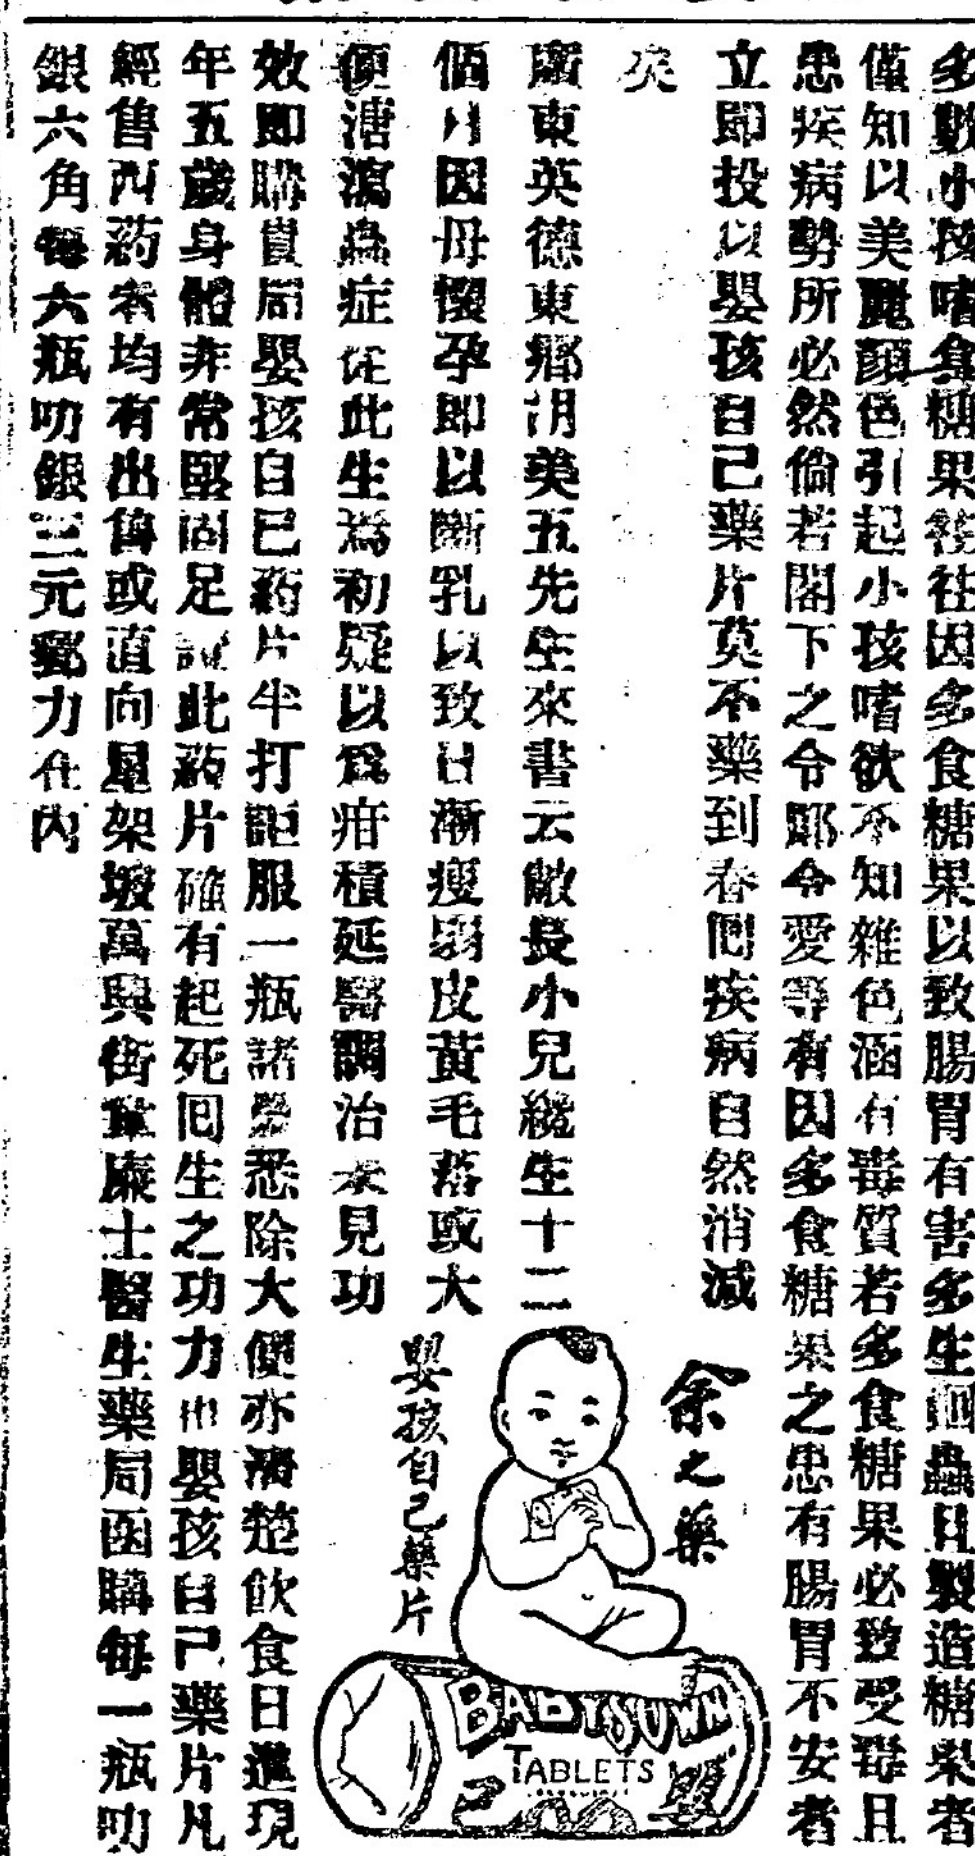 多數小孩嗜食糖果徃徃因多食糖果以致腸胃有害多生蛔蟲且製造糖果者
僅知以美麗顏色引起小孩嗜欲不知雜色涵有毒質若多食糖果必致受毒且
患疾病勢所必然倘若閣下之令郎令愛等有因多食糖果之患有腸胃不安者
立即投以嬰孩自己藥片莫不藥到春回疾病自然消减
矣
廣東英德東鄉胡美五先生來書云敝長小兒纔生十二
個月因母懷孕即以斷乳以致日漸瘦弱皮黃毛落或大
便溏瀉蟲症從此生焉初疑以為疳積延醫調治未見功
效即購貴局嬰孩自已葯片半打詎服一瓶諸患悉除大便亦清楚飲食日進現
年五歲身體非常堅固足証此葯片確有起死囘生之功力也嬰孩自己藥片凡
經售西葯者均有出售或直向星架坡萬興街韋廉士醫生藥局函購每一瓶叻
銀六角每六瓶叻銀三元郵力在內
余之藥
嬰孩自己藥片
BABYSOWN
TABLETS
己 嬰